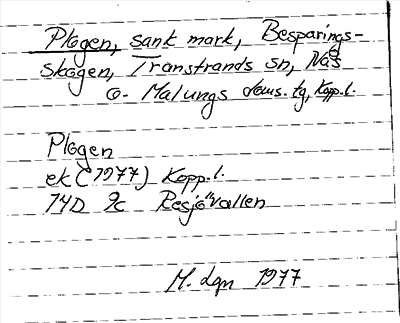 Plogen, sank mark, Besparings-
skogen, Transtrands sn, Nås
o. Malungs doms. tg, Kopp. l.
Plogen
ek (1977) Kopp. l.
14D 9c Resjövallen
M. Lgn 1977